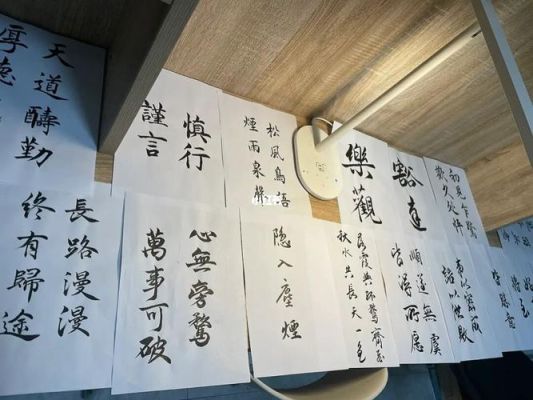 天道酬勤
厚德
慎行
謹言
松風鳥語
煙雨泉聲
樂觀
豁達
初見乍驚
歡久處怦
長路漫漫
終有歸途
心無旁騖
萬事可破
隐入塵煙
落霞與孤鶩齊飛
秋水共長天一色
順遂無虞
皆得所愿
事以密成
語以泄敗